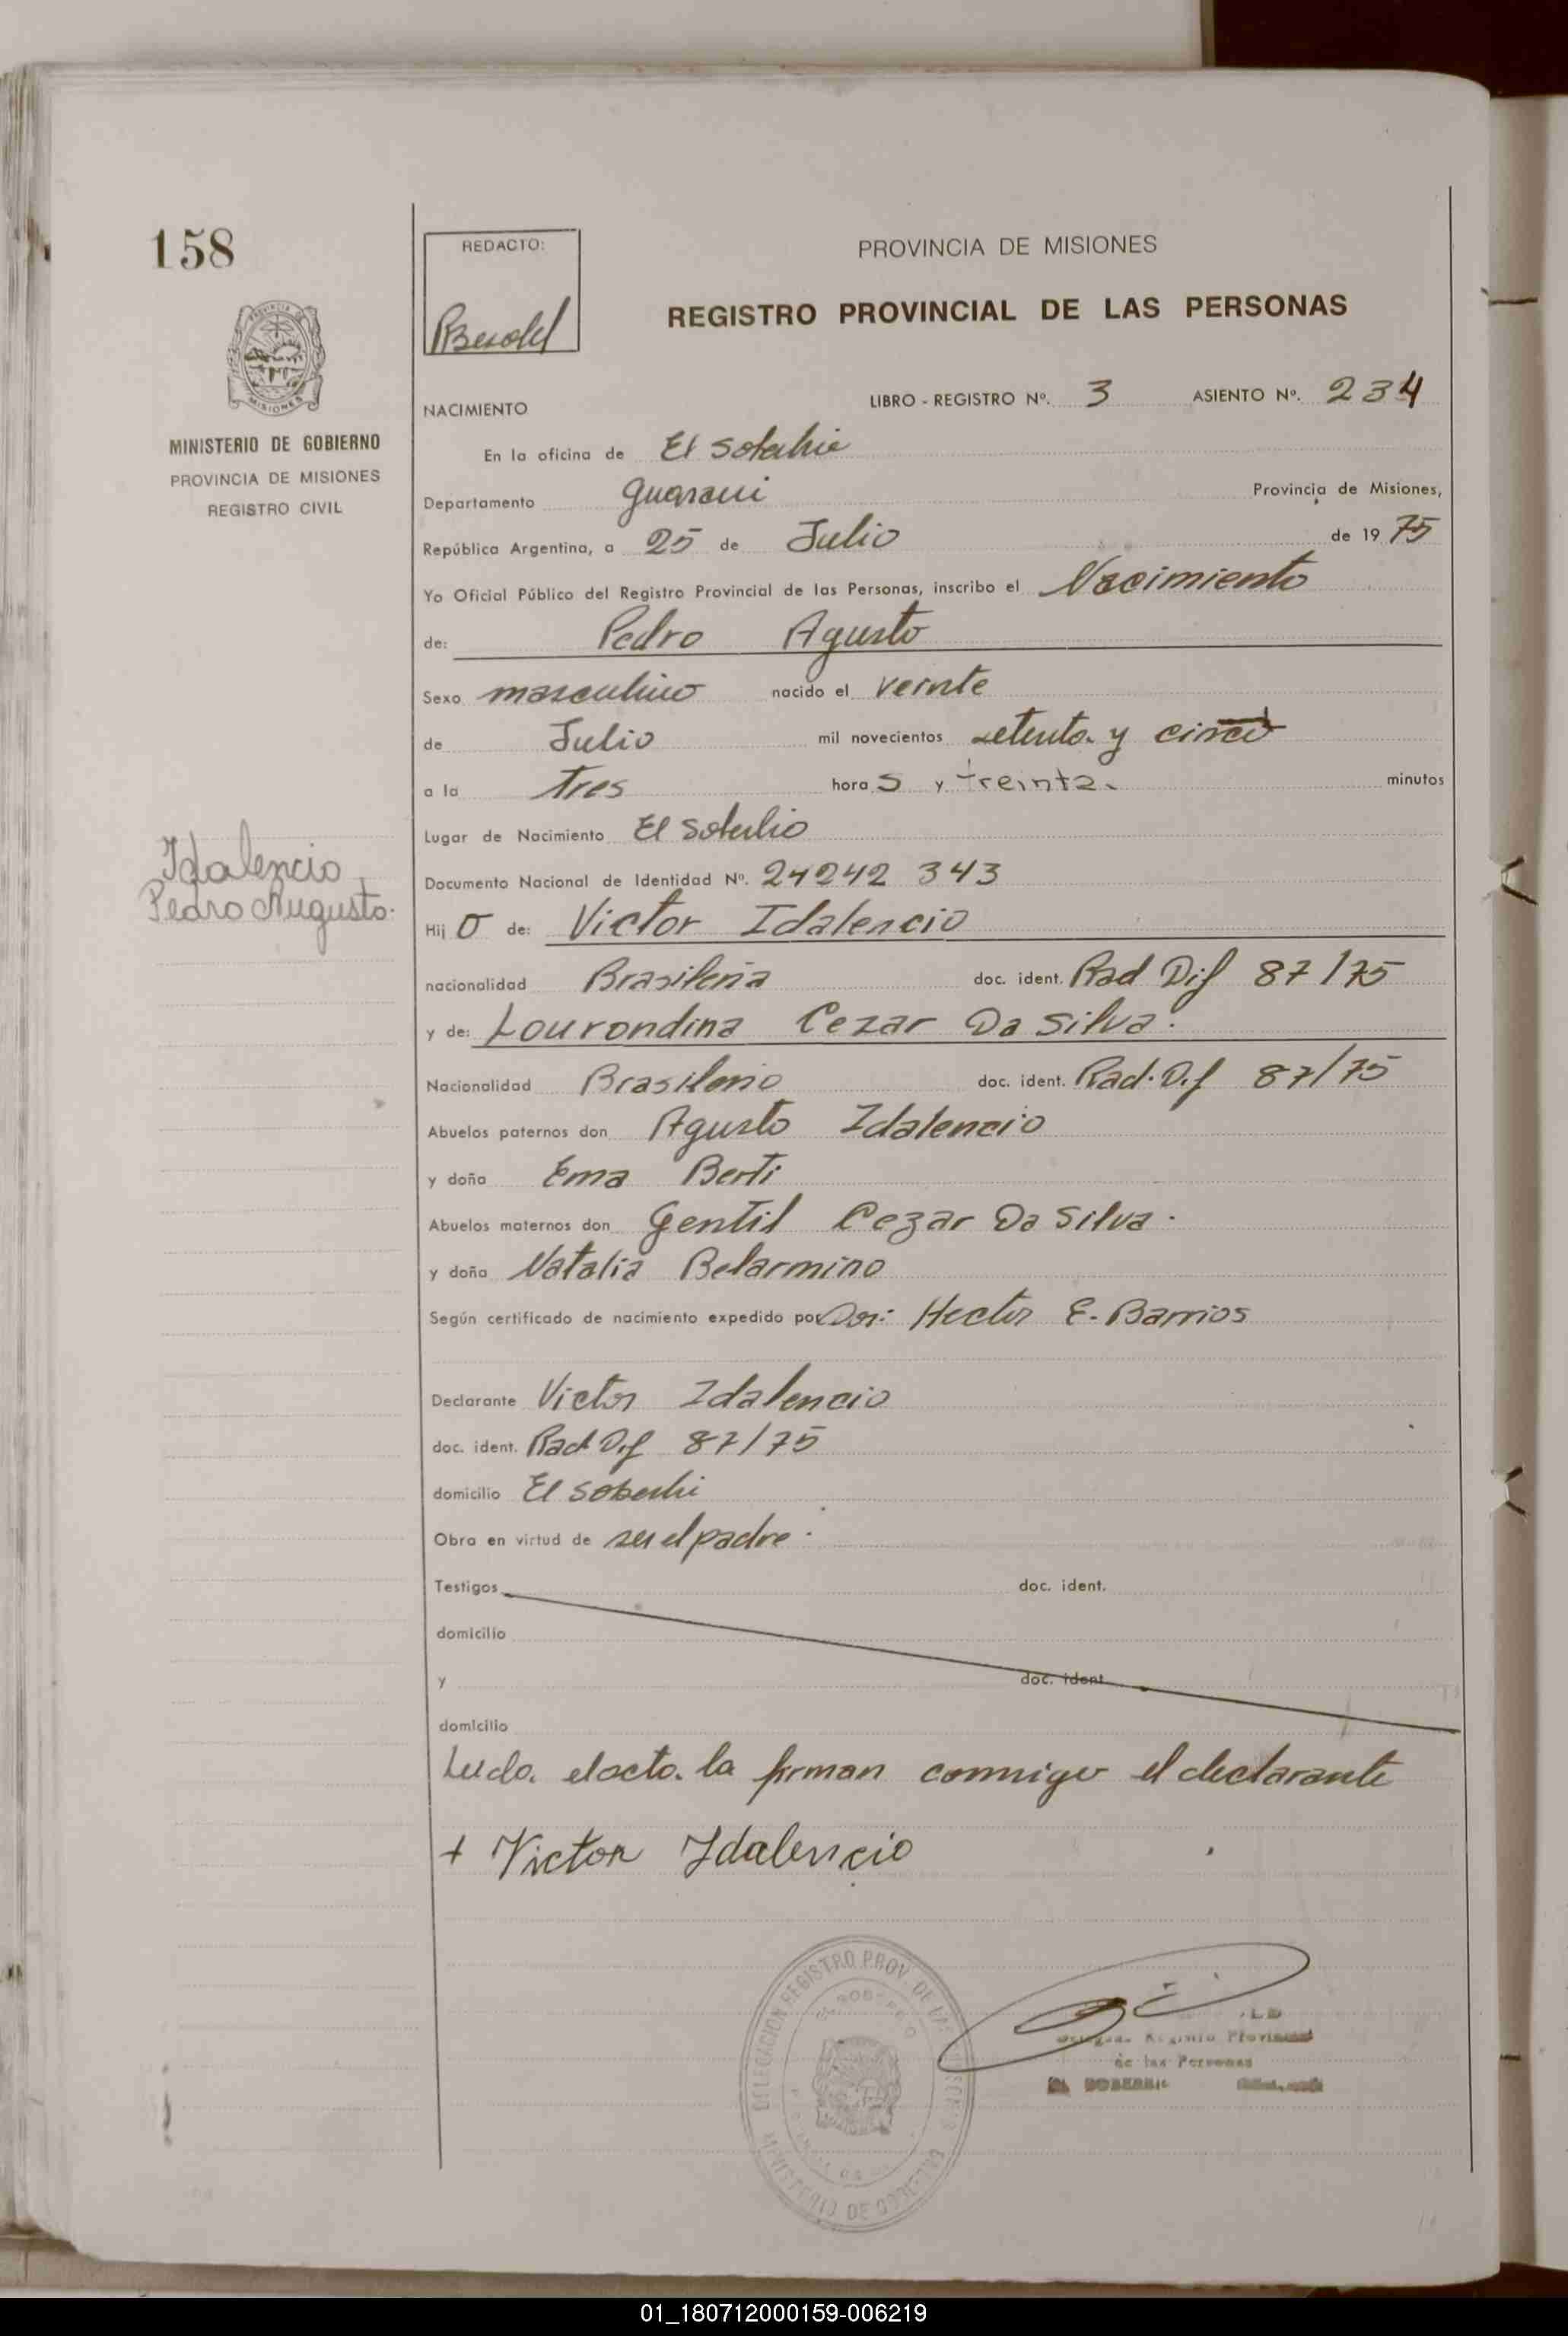 158
REDACTO:
PROVINCIA DE MISIONES
REGISTRO PROVINCIAL DE LAS PERSONAS
NACIMIENTO
LIBRO - REGISTRO Nº. 3 ASIENTO Nº. 234
MISIONES
MINISTERIO DE GOBIERNO
PROVINCIA DE MISIONES
REGISTRO CIVIL
En la oficina de El
Departamento Guarani Provincia de Misiones,
República Argentina, a 25 de Julio de 1975
Yo Oficial Público del Registro Provincial de las Personas, inscribo el Nacimiento
de: Pedro Agusto
Sexo masculino nacido el veinte
de Julio mil novecientos setenta y cinco
a la tres horas y treinta minutos
Lugar de Nacimiento El
Documento Nacional de Identidad Nº. 24242 343
Idalencio
Pedro Augusto.
Hijo de: Victor Idalencio
nacionalidad Brasileña doc. ident. Rad Dif 87/75
y de: Lourondina Cezar Da Silva.
Nacionalidad doc. ident. Rad. Dif 87/75
Abuelos paternos don Agusto Idalencio
y doña Ema Berti
Abuelos maternos don Gentil Cezar Da Silva.
y doña Natalia Belarmino
Según certificado de nacimiento expedido por Dr: Hector E. Barrios
Declarante Victor Idalencio
doc. ident. Rad Dif 87/75
domicilio El
Obra en virtud de ser el padre.
Testigos doc. ident.
domicilio
y doc. ident.
domicilio
Leida el acta la firman conmigo el declarante
+ Victor Idalencio
DELEGACION REGISTRO PROV. DE LAS PERSONAS
MINISTERIO DE GOBIERNO
Registro Provincial
de las Personas
01_180712000159-006219